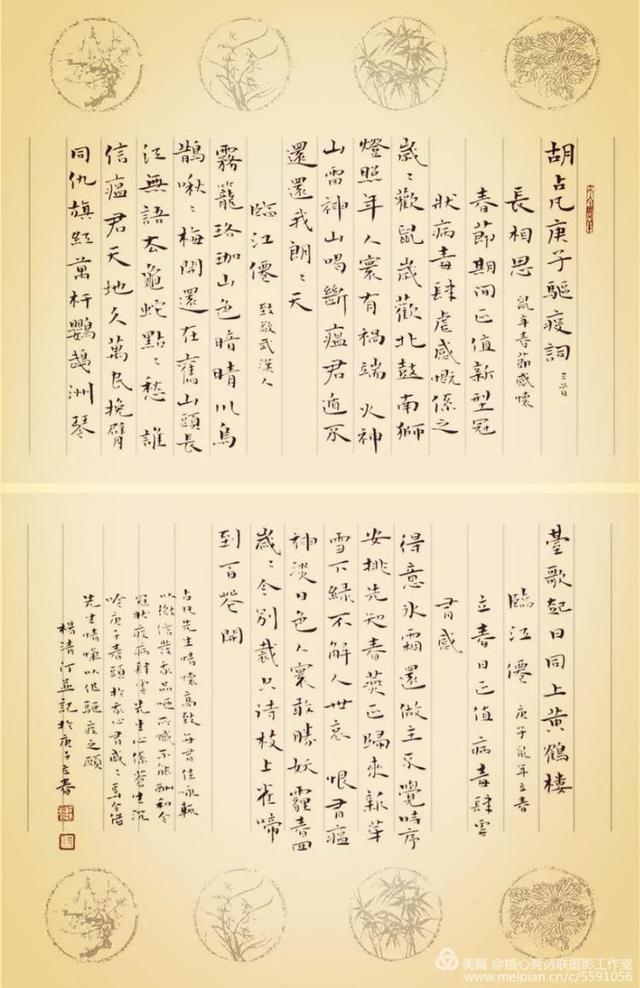 胡占凡庚子驅疫詞 三首
長相思 鼠年春節感懷
春節期间正值新型冠
狀病毒肆虐感慨係之
歲々歡鼠歲歡北鼓南獅
燈照年人寰有禍端 火神
山雷神山唱斷瘟君遁不
還還我朗々天
臨江僊 致敬武漢人
霧籠珞珈山色暗晴川烏
鵲啾々梅開還在舊山頭長
江無語在龜蛇點々愁 誰
信瘟君天地久萬民挽臂
同仇旗紅萬杆鸚鵡洲琴
臺歌起日同上黃鶴樓
臨江僊 庚子鼠年立春
立春日正值病毒肆虐
有感
得意冰霜還做主不覺時序
安排先知春燕正歸來新芽
雪下綠不解人世哀 恨有瘟
神淡日色人寰敢勝妖霾春回
歲々令別裁只待枝上雀啼
到百花開
占凡先生情懷高致每有佳咏輒
以微信發我品
冠狀疫病肆虐先生心係蒼生沉
吟庚子春頭於我心有感々焉今借
先生情懷以作驅疫之願
楊清汀並記於庚子立春
美篇 @植心斋诗联摄影工作室
www.meipian.cn/c/5591056